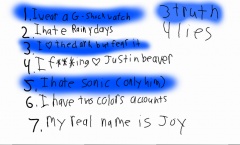 1. I wear a G-shock watch
2. I hate Rainy days
3. I ♡ the dark but fear it
4. I f***ing ♡ Justin beaver
5. I hate sonic (only him)
6. I have two colors accounts
7. My real name is Joy
3 truth
4 lies